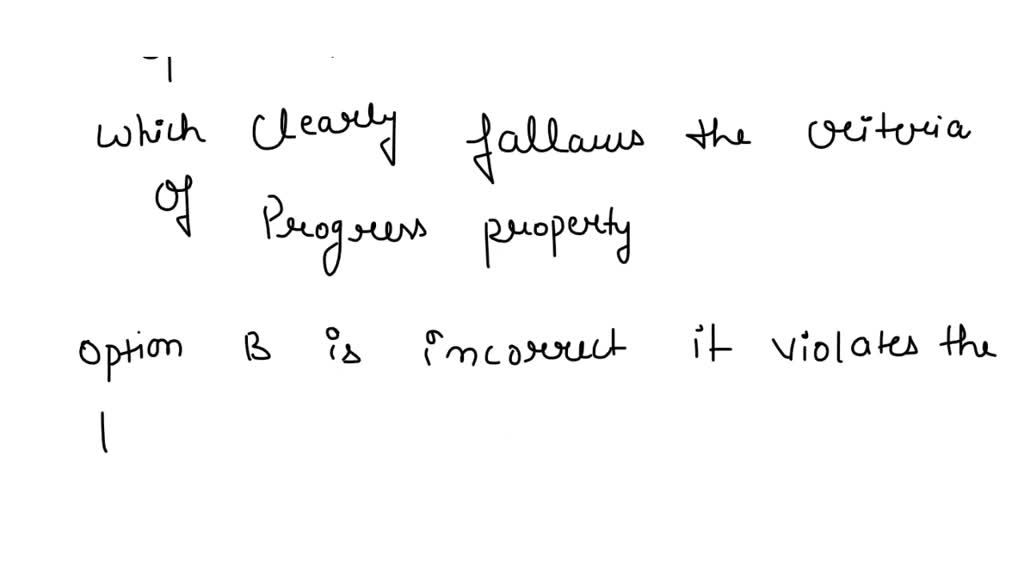 which clearly fallows the criteria
of Progress property
option B is incorrect it violates the